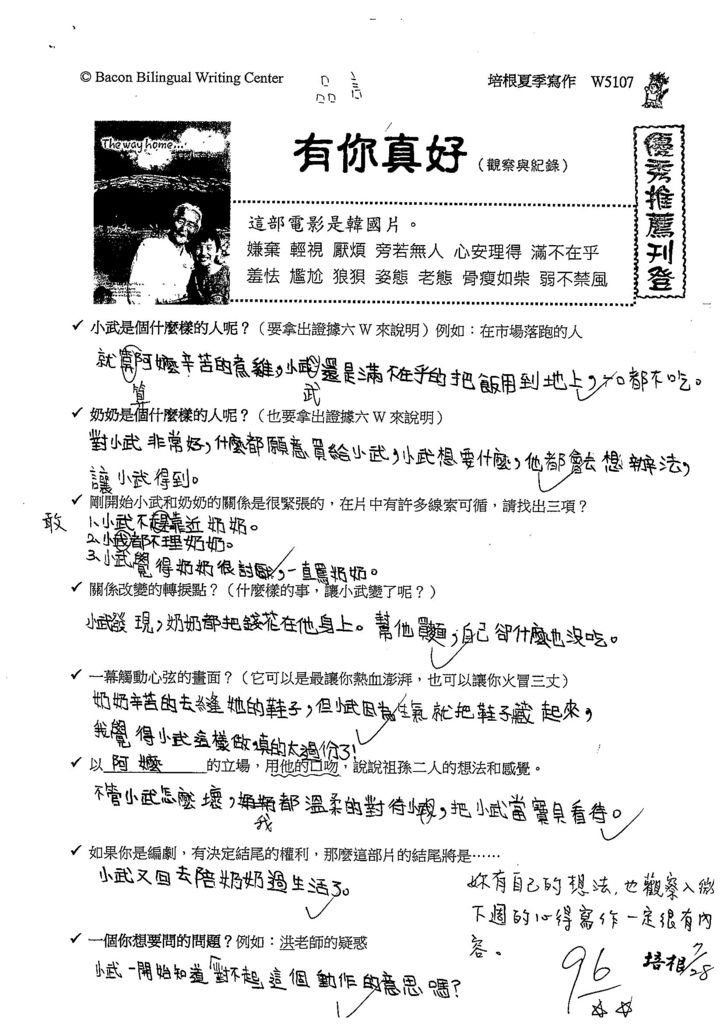 © Bacon Bilingual Writing Center
培根夏季寫作 W5107
The way home...
有你真好(觀察與紀錄)
優秀推薦刊登
這部電影是韓國片。
嫌棄 輕視 厭煩 旁若無人 心安理得 滿不在乎
羞怯 尷尬 狼狽 姿態 老態 骨瘦如柴 弱不禁風
✓ 小武是個什麼樣的人呢?(要拿出證據六W來說明)例如:在市場落跑的人
就算阿嬤辛苦的煮雞,小武還是滿不在乎的把飯用到地上,一口都不吃。
算
武
✓ 奶奶是個什麼樣的人呢?(也要拿出證據六W來說明)
對小武非常好,什麼都願意買給小武,小武想要什麼,他都會去想辦法,
讓小武得到。
✓ 剛開始小武和奶奶的關係是很緊張的,在片中有許多線索可循,請找出三項?
敢
1.小武不趕靠近奶奶。
2.小武都不理奶奶。
3.小武覺得奶奶很討厭,一直罵奶奶。
✓ 關係改變的轉捩點?(什麼樣的事,讓小武變了呢?)
小武發現,奶奶都把錢花在他身上。幫他買麵,自己卻什麼也沒吃。
✓ 一幕觸動心弦的畫面?(它可以是最讓你熱血澎湃,也可以讓你火冒三丈)
奶奶辛苦的去縫她的鞋子,但小武因為生氣就把鞋子藏起來,
我覺得小武這樣做,真的太過份了!
✓ 以 阿嬤 的立場,用他的口吻,說說祖孫二人的想法和感覺。
不管小武怎麼壞,都溫柔的對待小武,把小武當寶貝看待。
我
✓ 如果你是編劇,有決定結尾的權利,那麼這部片的結尾將是……
小武又回去陪奶奶過生活了。
妳有自己的想法,也觀察入微
下週的心得寫作一定很有內
容。
✓ 一個你想要問的問題?例如:洪老師的疑惑
小武一開始知道「對不起」這個動作的意思嗎?
96
培根 7/28